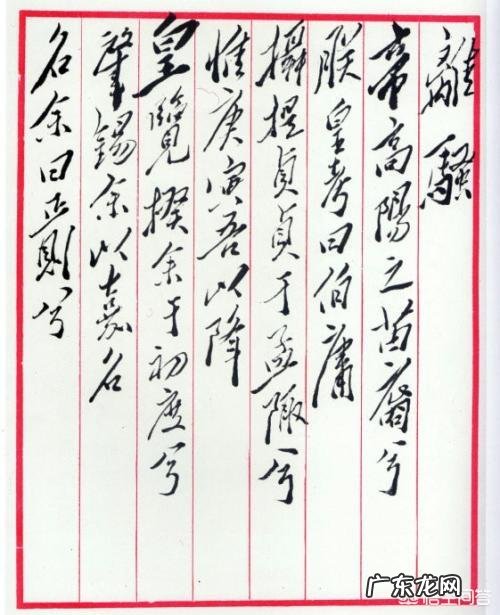 離騷
帝高陽之苗裔兮
朕皇考曰伯庸
攝提貞貞于孟陬兮
惟庚寅吾以降
皇覽揆余于初度兮
肇錫余以嘉名
名余曰正則兮
广东龙网